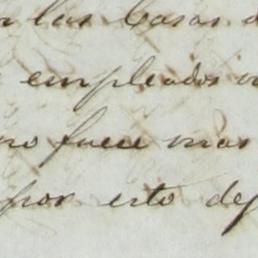 las Casas
empleados
no fuece mas
por esto